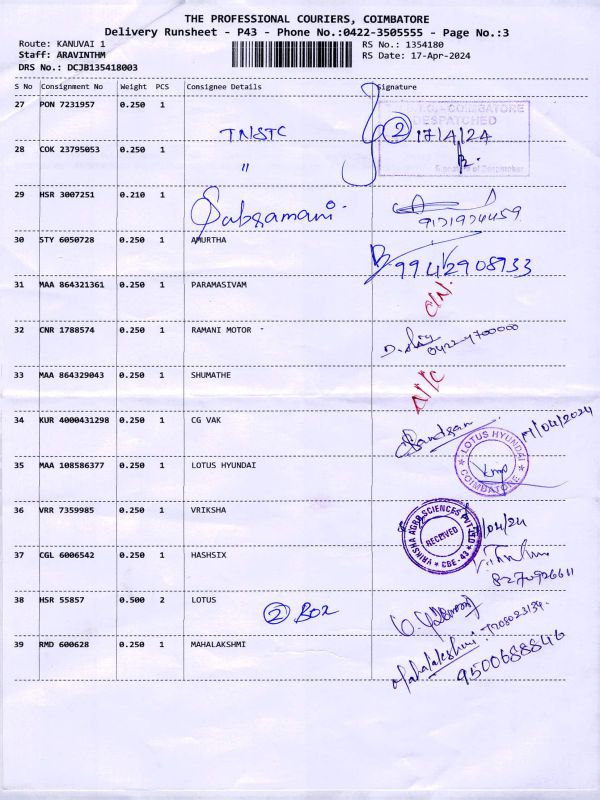 THE PROFESSIONAL COURIERS, COIMBATORE
Delivery Runsheet - P43 - Phone No.:0422-3505555 - Page No.:3
Route: KANUVAI 1
Staff: ARAVINTHM
DRS No.: DCJB135418003
RS No.: 1354180
RS Date: 17-Apr-2024
S No Consignment No Weight PCS Consignee Details Signature
27 PON 7231957 0.250 1 TNSTC
DESPATCHED
2 17/4/24
28 COK 23795053 0.250 1 "
29 HSR 3007251 0.210 1 Sabgamani
9171924459
30 STY 6050728 0.250 1 AMURTHA
9942908933
31 MAA 864321361 0.250 1 PARAMASIVAM
32 CNR 1788574 0.250 1 RAMANI MOTOR
04224700000
33 MAA 864329043 0.250 1 SHUMATHE
34 KUR 4000431298 0.250 1 CG VAK
17/04/2024
35 MAA 108586377 0.250 1 LOTUS HYUNDAI
LOTUS HYUNDAI
COIMBATORE
36 VRR 7359985 0.250 1 VRIKSHA
VRIKSHA AGRO SCIENCES PVT LTD
RECEIVED
CBE-43
/04/24
37 CGL 6006542 0.250 1 HASHSIX
8270926611
38 HSR 55857 0.500 2 LOTUS
2 BOX
39 RMD 600628 0.250 1 MAHALAKSHMI
Mahalakshmi
9500688846